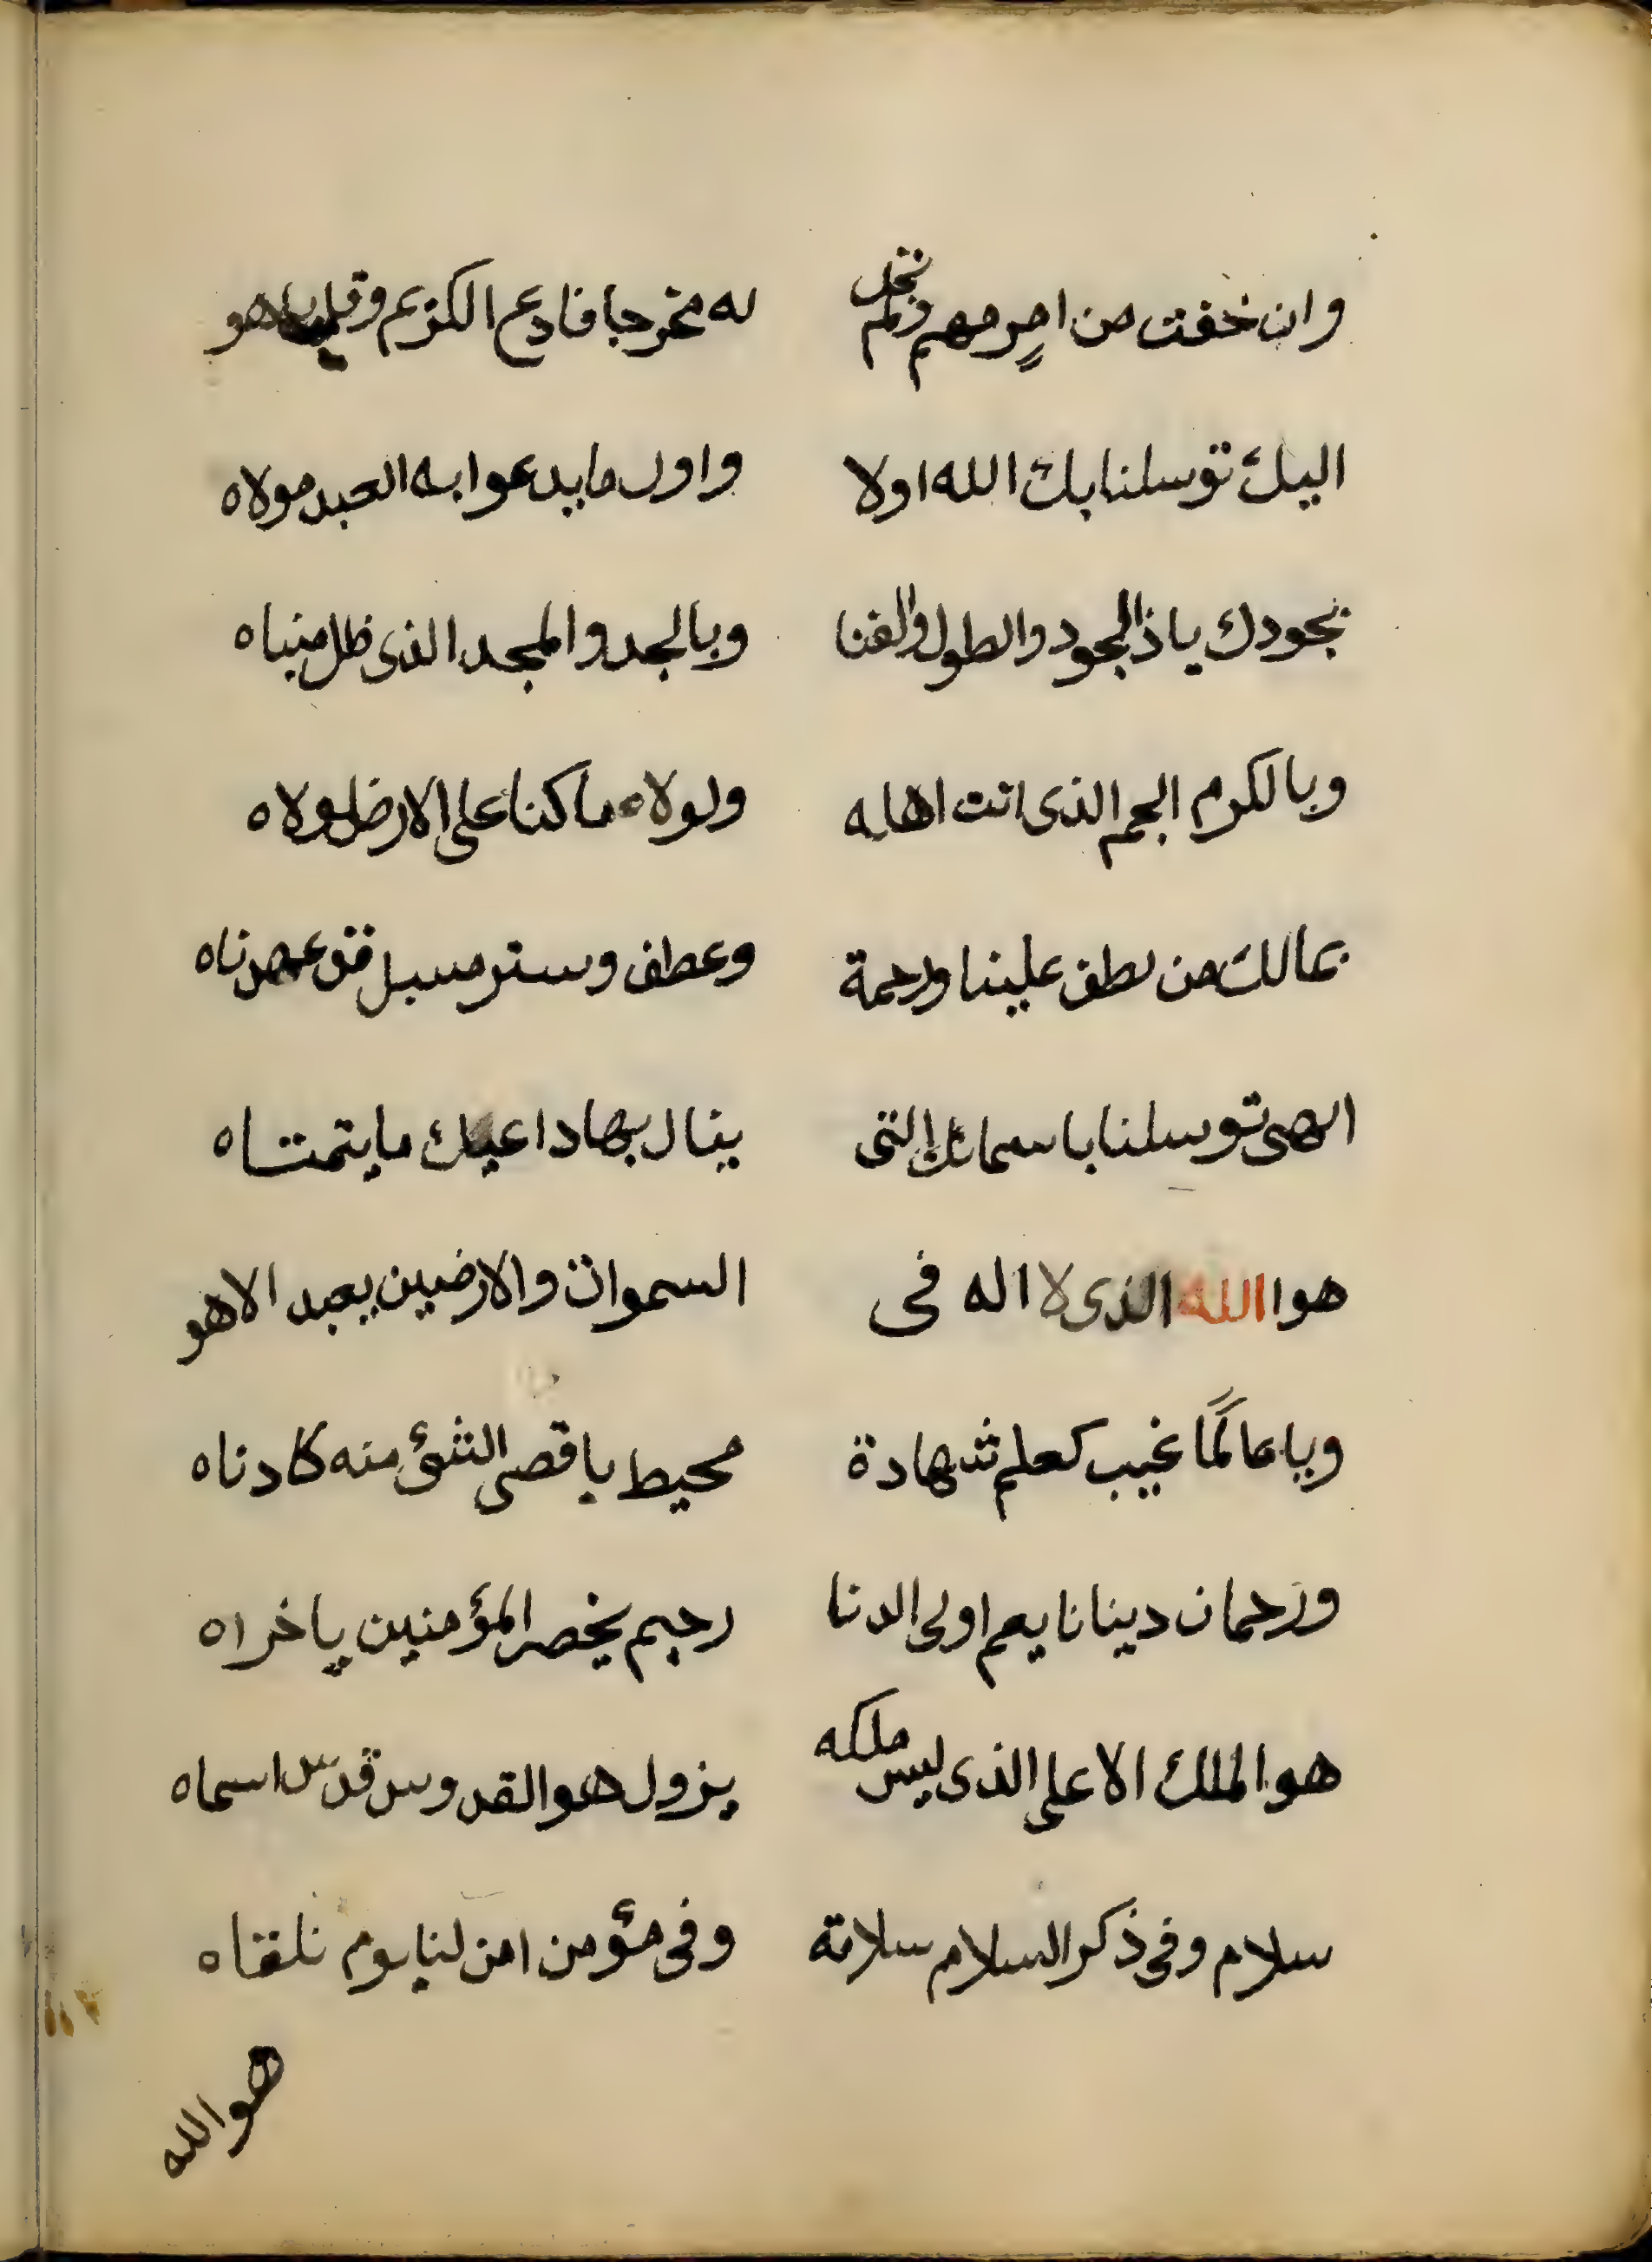 وان خفت من امرٍ مهم ولم تجد له مخرجا فادع الكريم وقل ياهو
اليك توسلنا بك الله اولا واول ما يدعوا به العبد مولاه
بجودك يا ذا الجود والطول والغنا وبالجد والمجد الذى ظل منباه
وبالكرم الجم الذى انت اهله ولولاه ما كنا على الارض لولاه
بمالك من لطف علينا ورحمة وعطف وستر مسبل قد عهدناه
الهى توسلنا باسمائك التى ينال بها داعيك ما يتمناه
هو الله الذى لا اله فى السموات والارضين يعبد الا هو
ويا عالمًا غيب كعلم شهادة محيط باقصى الشئ منه كادناه
ورحمان دينانا يعم اولى الدنا رحيم يخص المؤمنين باخراه
هو الملك الاعلى الذى ليس ملكه يزول هو القدوس قدس اسماه
سلام وفى ذكر السلام سلامة وفى مؤمن امن لنا يوم نلقاه
هو الله